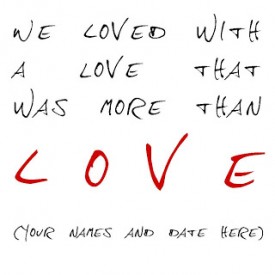 WE LOVED WITH
A LOVE THAT
WAS MORE THAN
LOVE
(YOUR NAMES AND DATE HERE)